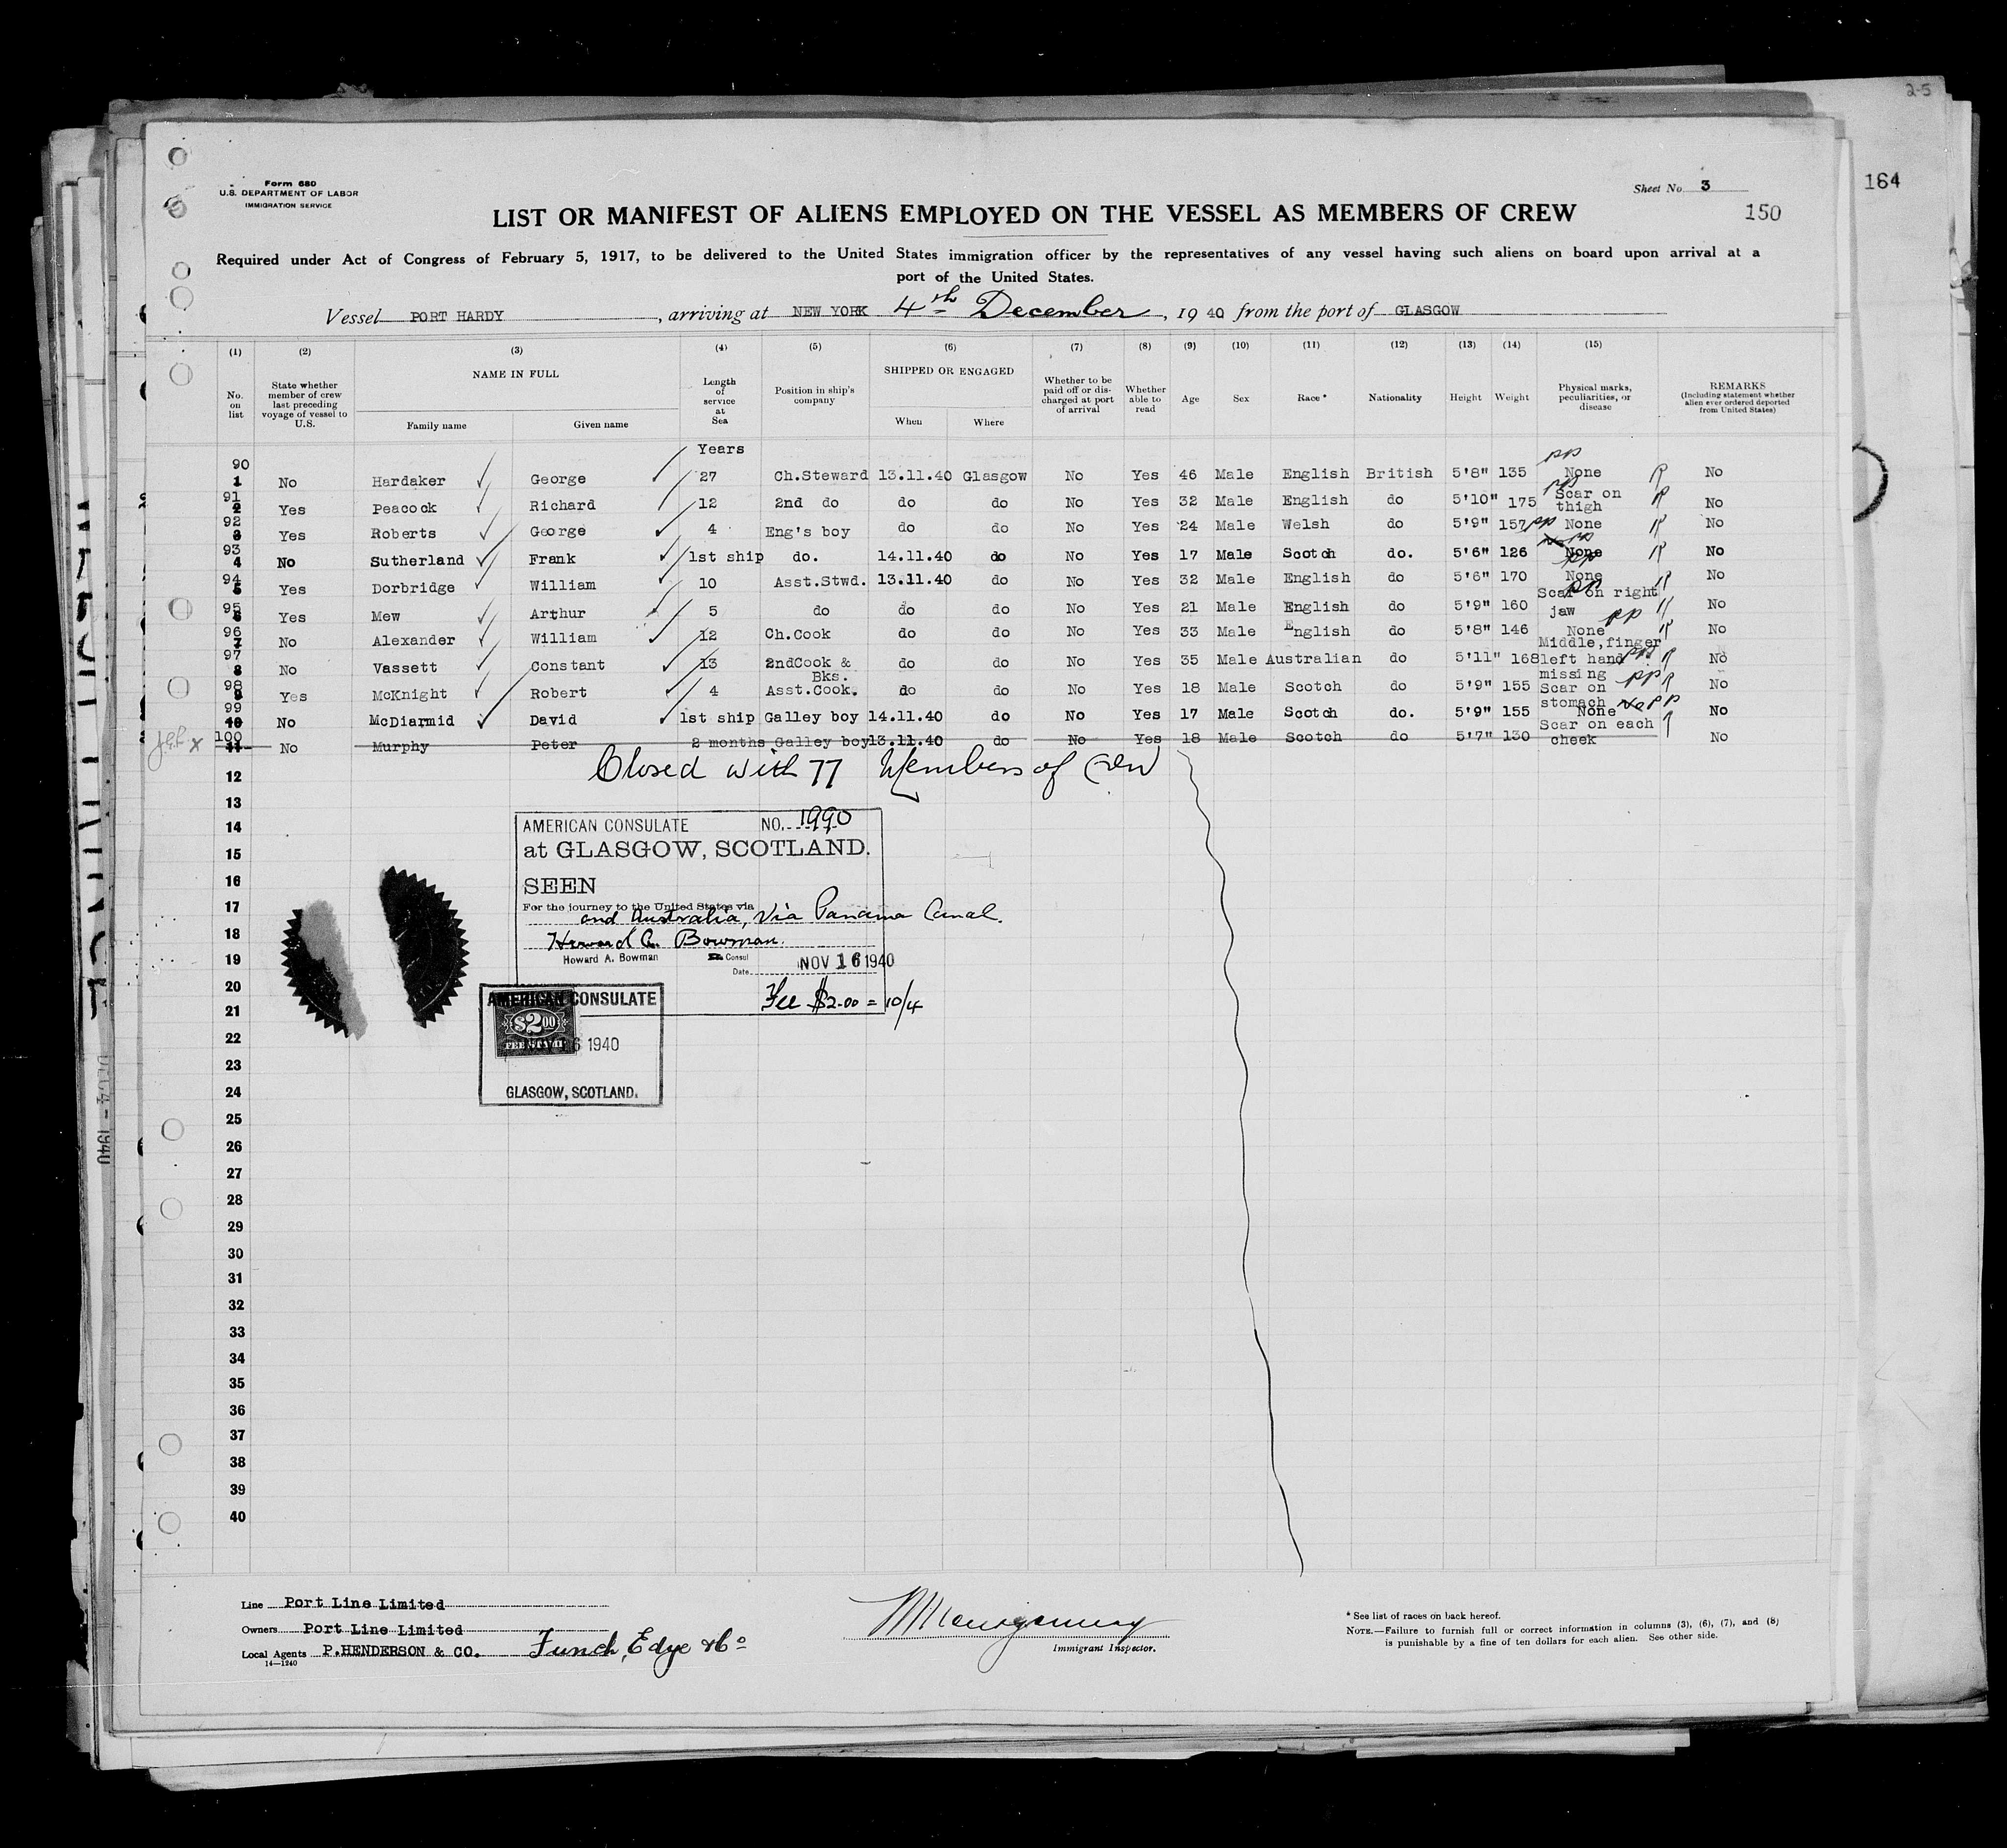 2-5
164
Form 680
U.S. DEPARTMENT OF LABOR
IMMIGRATION SERVICE
Sheet No. 3
150
LIST OR MANIFEST OF ALIENS EMPLOYED ON THE VESSEL AS MEMBERS OF CREW
Required under Act of Congress of February 5, 1917, to be delivered to the United States immigration officer by the representatives of any vessel having such aliens on board upon arrival at a
port of the United States.
Vessel PORT HARDY, arriving at NEW YORK 4th December, 1940 from the port of GLASGOW
(1) (2) (3) (4) (5) (6) (7) (8) (9) (10) (11) (12) (13) (14) (15)
No. on list
State whether member of crew last preceding voyage of vessel to U.S.
NAME IN FULL
Family name Given name
Length of service at Sea
Position in ship's company
SHIPPED OR ENGAGED
When Where
Whether to be paid off or discharged at port of arrival
Whether able to read
Age Sex Race * Nationality Height Weight
Physical marks, peculiarities, or disease
REMARKS
(Including statement whether alien ever ordered deported from United States)
Years
90 1 No Hardaker George 27 Ch.Steward 13.11.40 Glasgow No Yes 46 Male English British 5'8" 135 None No
91 2 Yes Peacock Richard 12 2nd do do do No Yes 32 Male English do 5'10" 175 Scar on thigh No
92 3 Yes Roberts George 4 Eng's boy do do No Yes 24 Male Welsh do 5'9" 157 pp None No
93 4 No Sutherland Frank 1st ship do. 14.11.40 do No Yes 17 Male Scotch do. 5'6" 126 None No
94 5 Yes Dorbridge William 10 Asst.Stwd. 13.11.40 do No Yes 32 Male English do 5'6" 170 None No
95 6 Yes Mew Arthur 5 do do do No Yes 21 Male English do 5'9" 160 Scar on right jaw pp No
96 7 No Alexander William 12 Ch.Cook do do No Yes 33 Male English do 5'8" 146 None No
97 8 No Vassett Constant 13 2ndCook & Bks. do do No Yes 35 Male Australian do 5'11" 168 Middle,finger left hand missing No
98 9 Yes McKnight Robert 4 Asst.Cook. do do No Yes 18 Male Scotch do 5'9" 155 Scar on stomach pp No
99 10 No McDiarmid David 1st ship Galley boy 14.11.40 do No Yes 17 Male Scotch do. 5'9" 155 None No
100 11 No Murphy Peter 2 months Galley boy 13.11.40 do No Yes 18 Male Scotch do 5'7" 130 Scar on each cheek No
12
Closed with 77 Members of Crew
13
14
15
16
17
18
19
20
21
22
23
24
25
26
27
28
29
30
31
32
33
34
35
36
37
38
39
40
AMERICAN CONSULATE NO. 1990
at GLASGOW, SCOTLAND.
SEEN
For the journey to the United States via
and Australia, via Panama Canal.
Howard A. Bowman.
Howard A. Bowman Consul
Date NOV 16 1940
Fee $2.00 = 10/4
AMERICAN CONSULATE
$2.00
FEE STAMP
6 1940
GLASGOW, SCOTLAND.
DEC 4 - 1940
Line Port Line Limited
Owners Port Line Limited
Local Agents P.HENDERSON & CO. Funch, Edye & Co
14—1240
Immigrant Inspector.
* See list of races on back hereof.
NOTE.—Failure to furnish full or correct information in columns (3), (6), (7), and (8)
is punishable by a fine of ten dollars for each alien. See other side.